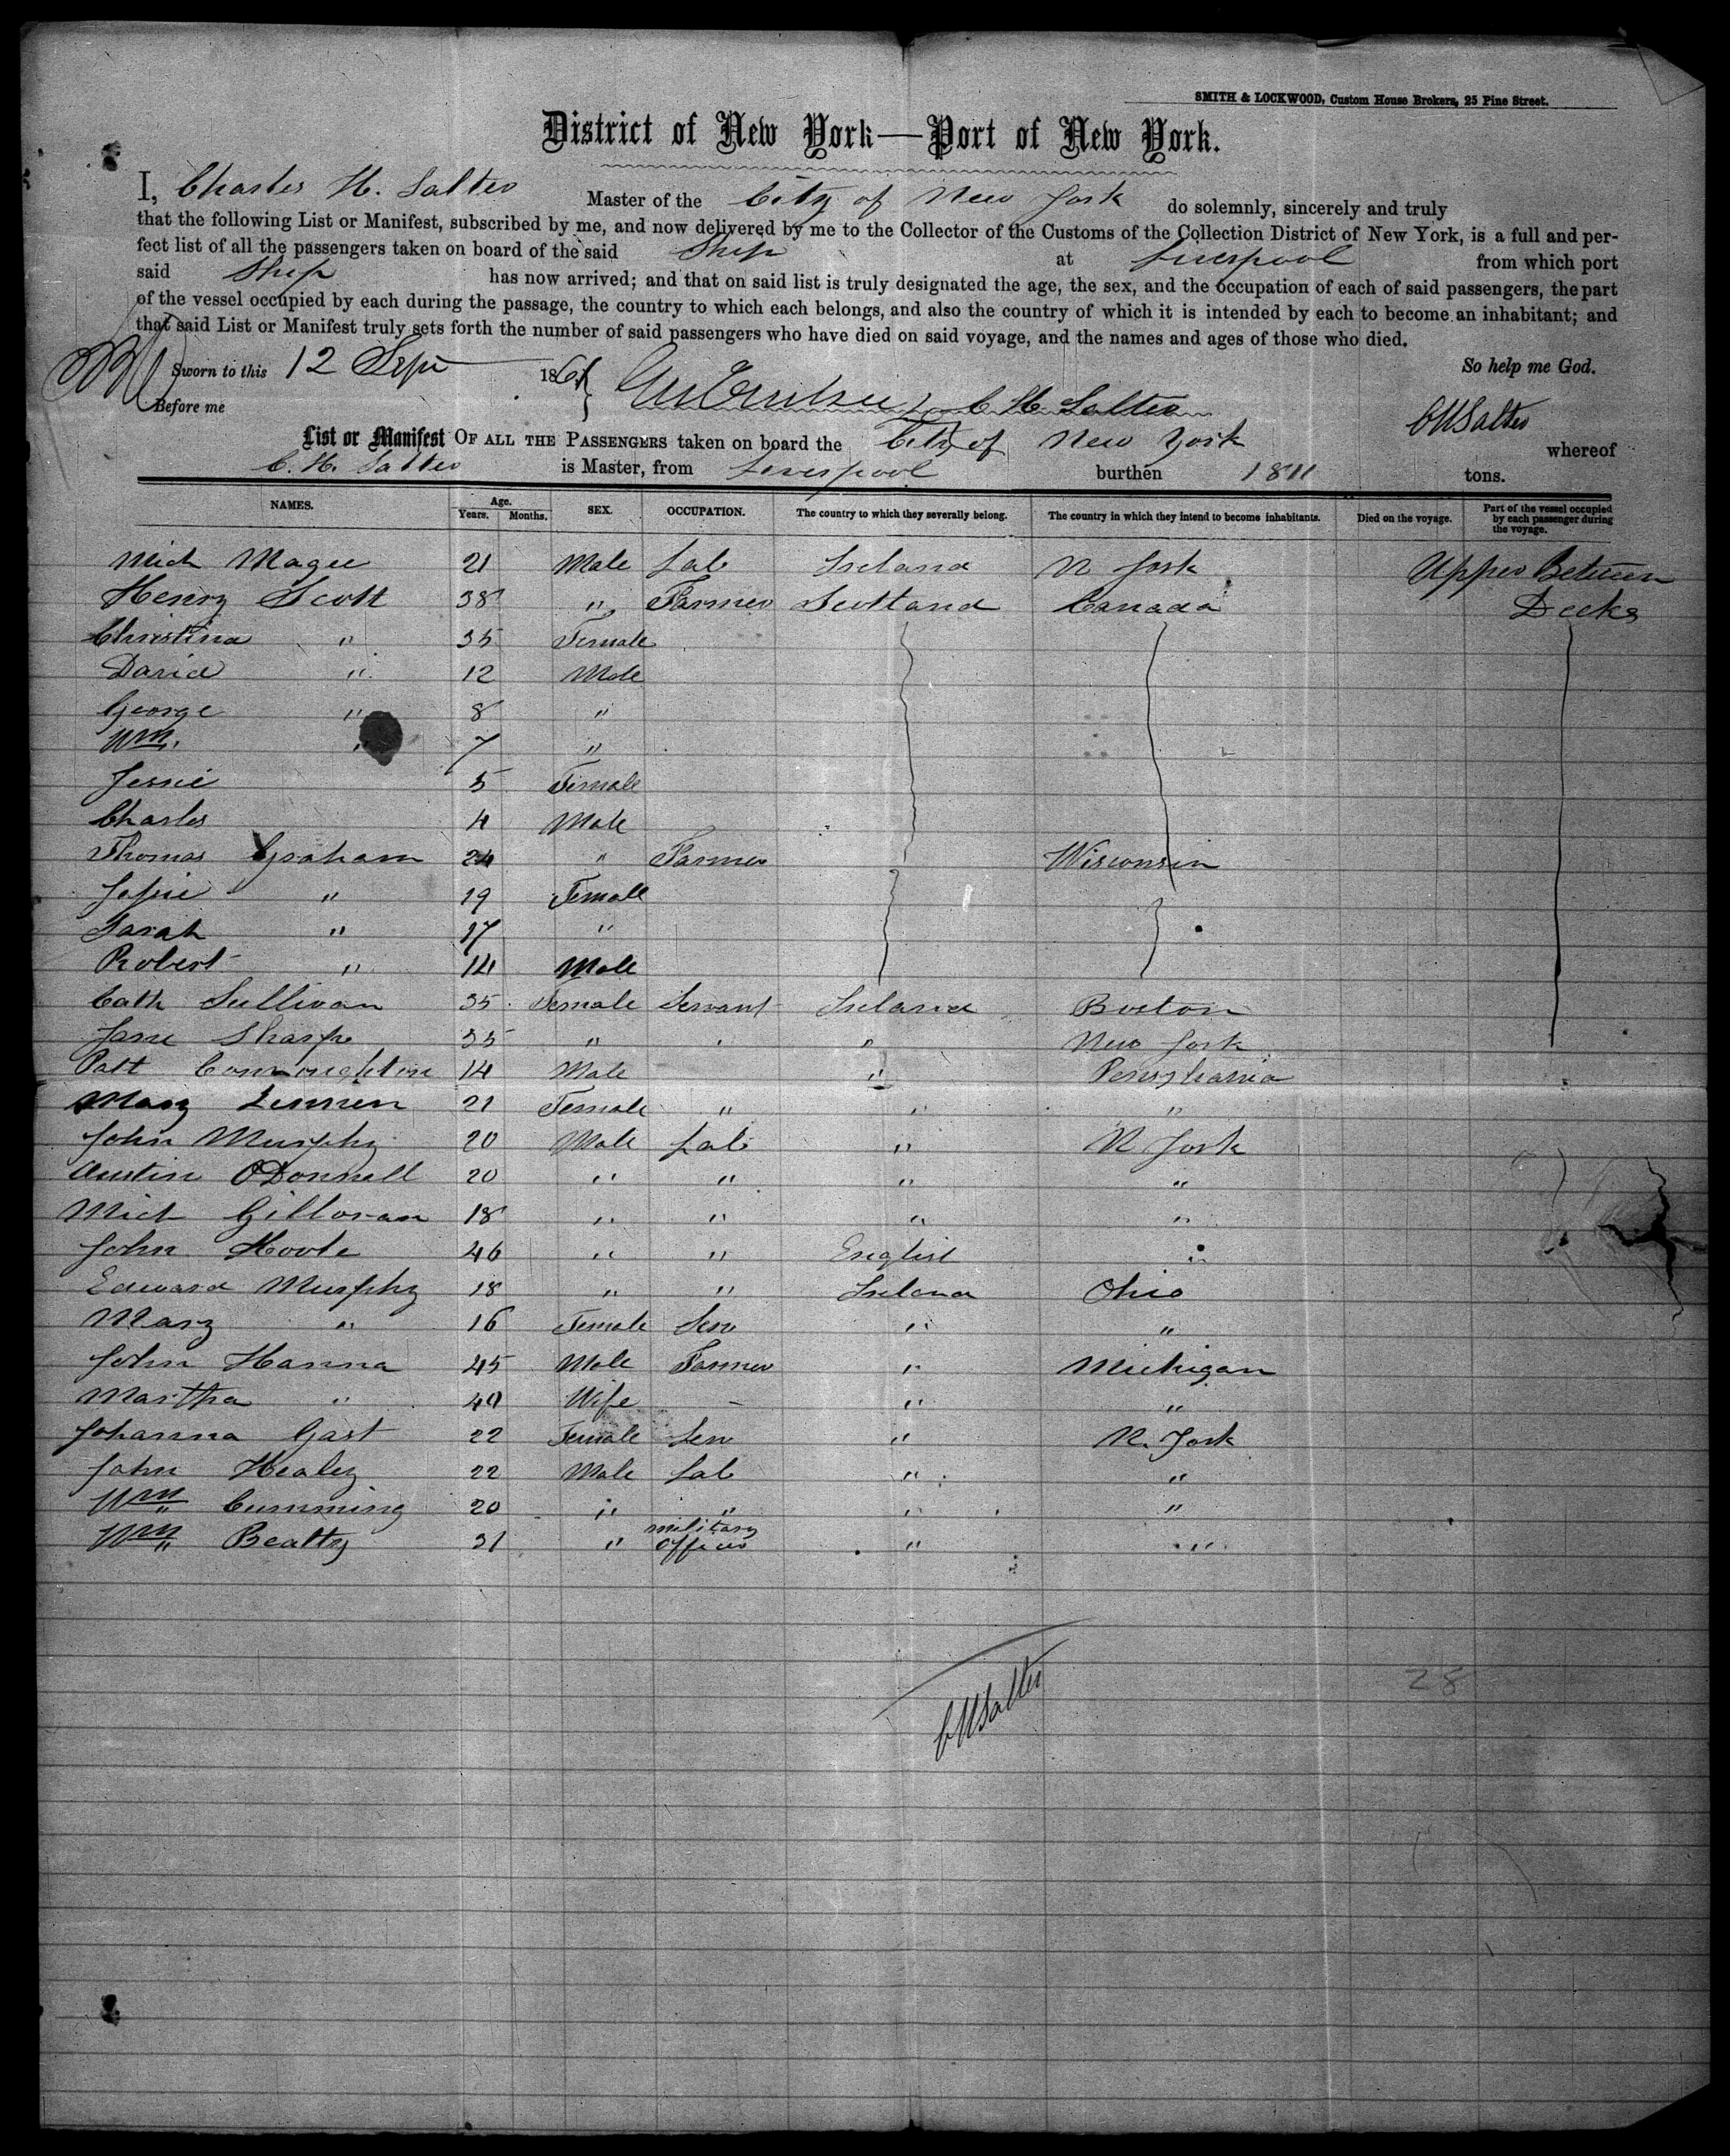 SMITH & LOCKWOOD, Custom House Brokers, 25 Pine Street.
District of New York—Port of New York.
I, Charles H. Salter Master of the City of New York do solemnly, sincerely and truly
that the following List or Manifest, subscribed by me, and now delivered by me to the Collector of the Customs of the Collection District of New York, is a full and per-
fect list of all the passengers taken on board of the said Ship at Liverpool from which port
said Ship has now arrived; and that on said list is truly designated the age, the sex, and the occupation of each of said passengers, the part
of the vessel occupied by each during the passage, the country to which each belongs, and also the country of which it is intended by each to become an inhabitant; and
that said List or Manifest truly sets forth the number of said passengers who have died on said voyage, and the names and ages of those who died.
Sworn to this 12 Sept 1861 So help me God.
Before me C H Salter CHSalter
List or Manifest OF ALL THE PASSENGERS taken on board the City of New York whereof
C. H. Salter is Master, from Liverpool burthen 1811 tons.
NAMES. Age. Years. Months. SEX. OCCUPATION. The country to which they severally belong. The country in which they intend to become inhabitants. Died on the voyage. Part of the vessel occupied by each passenger during the voyage.
Mich Magee 21 Male Lab Ireland N York Upper Between
Henry Scott 38 " Farmer Scotland Canada Decks
Christina " 35 Female
David " 12 Male
George " 8 "
Wm. " 7 "
Jessie 5 Female
Charles 4 Male
Thomas Graham 24 " Farmer Wisconsin
Jessie " 19 Female
Sarah " 17 "
Robert " 14 Male
Cath Sullivan 35 Female Servant Ireland Boston
Jane Sharpe 35 " " " New York
Patt 14 Male " Pensylvania
Mary Lennen 21 Female " " "
John Murphy 20 Male Lab " N York
Austin ODonnell 20 " " " "
Mich Gilloran 18 " " " "
John Hoole 46 " " English "
Edward Murphy 18 " " Ireland Ohio
Mary " 16 Female Serv " "
John Hanna 45 Male Farmer " Michigan
Martha " 40 Wife – " "
Johanna Gast 22 Female Serv " N. York
John Healey 22 Male Lab " "
Wm Cumming 20 " " " "
Wm Bealty 31 " military officer " "
CHSalter
28